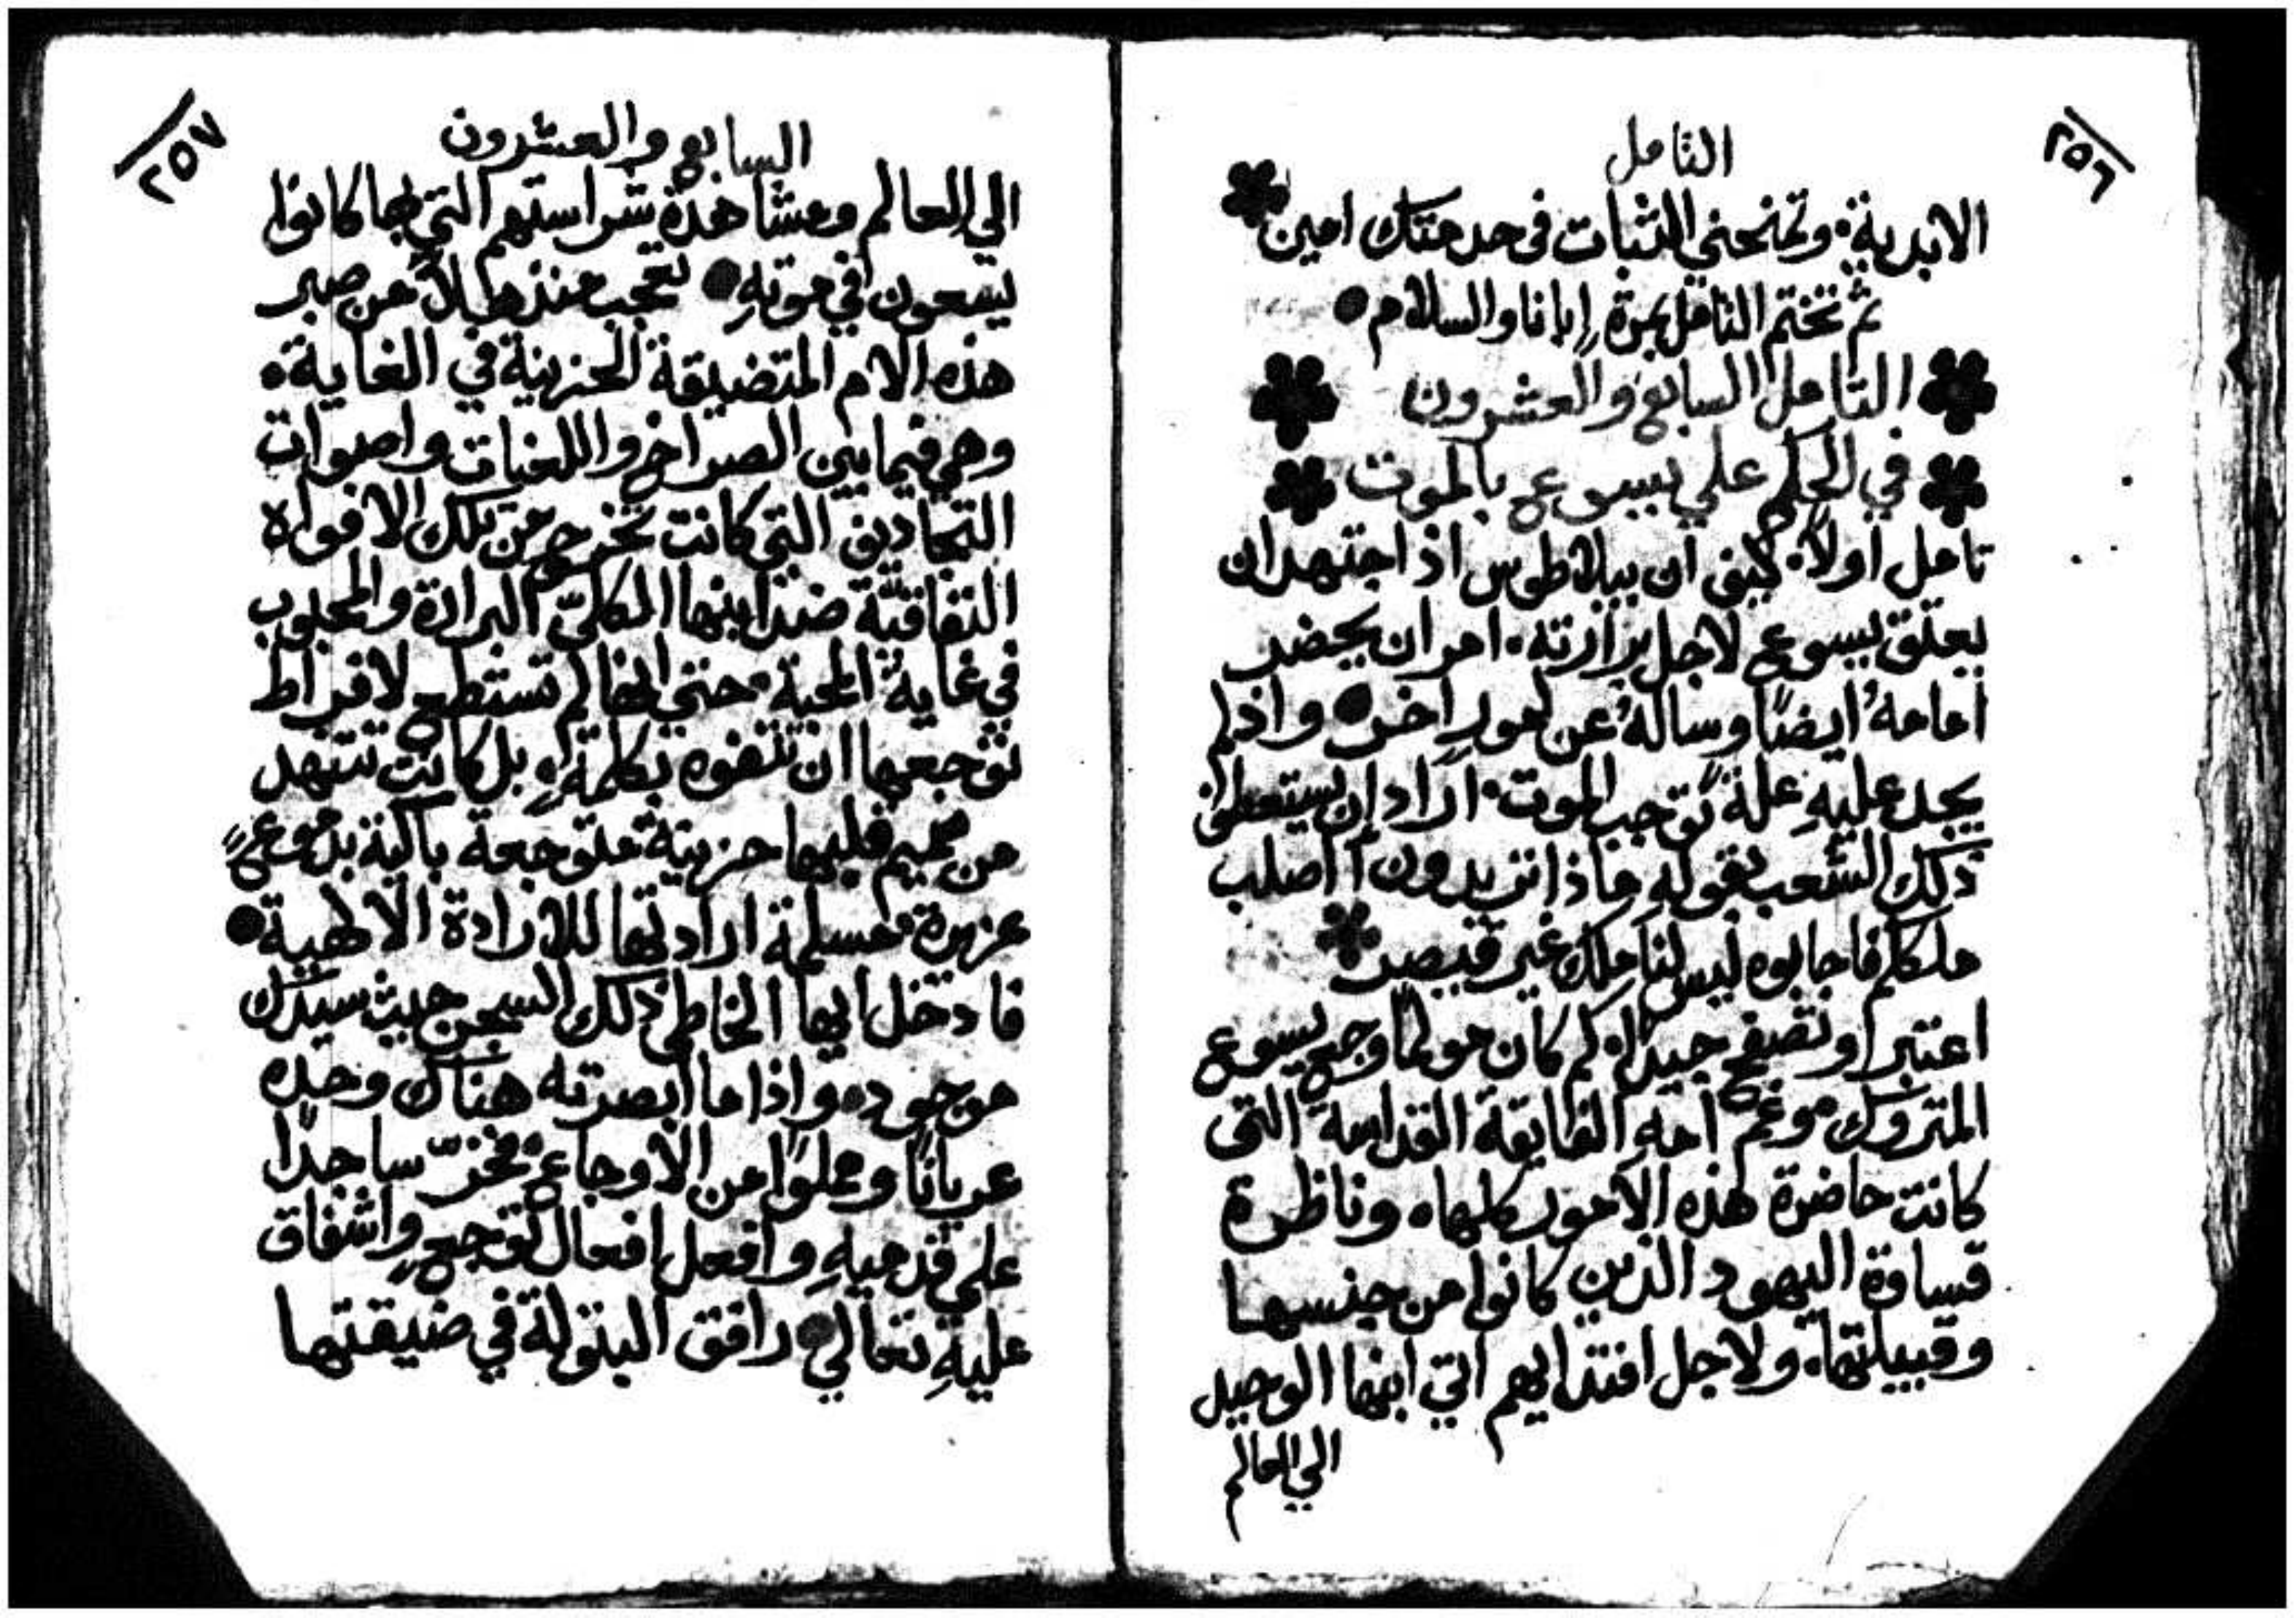 ٢٥٦
التامل
الابدية. وتمنحني الثبات في خدمتك امين
ثم تختم التامل بمرةٍ ابانا والسلام
التامل السابع والعشرون
في الحكم علي يسوع بالموت
تامل اولاً. كيف ان بيلاطوس اذ اجتهد ان
يعتق يسوع لاجل برارته. امر ان يحضر
امامهُ ايضًا وسالهُ عن امورٍ اخر واذ لم
يجد عليهِ علةً توجب الموت. اراد ان يستعطف
ذلك الشعب بقولهِ ماذا تريدون آ اصلب
ملككم فاجابوه ليس لنا ملك غير قيصر
اعتبر او تصفح جيدًا. كم كان مولمًا وجع يسوع
المتروك. وغم امهِ الفايقة القداسة التي
كانت حاضرة هذه الامور كلها. وناظرة
قساوة اليهود الذين كانوا من جنسها
وقبيلتها. ولاجل افتدايهم اتي ابنها الوحيد
الي العالم
٢٥٧
السابع والعشرون
الي العالم ومشاهدة شراستهم التي بها كانوا
يسعون في موتهِ تعجب منذهلاً من صبر
هذه الام المتضيقة الحزينة في الغاية.
وهي فيما بين الصراخ واللعنات واصوات
التجاديف التي كانت تخرج من تلك الافواه
النفاقيّة ضد ابنها الكليّ البرارة والمحبوب
في غاية المحبة. حتي انها لم تستطع لافراط
توجعها ان تتفوه بكلمةٍ. بل كانت تتنهد
من صميم قلبها حزينة متوجعة باكية بدموعٍ
غزيرة. مسلمة ارادتها للارادة الالهية
فادخل ايها الخاطي ذلك السجن حيث سيدك
موجود. واذا ما ابصرته هناك وحده
عريانًا ومملوًا من الاوجاع. فخرّ ساجدًا
علي قدميهِ وافعل افعال توجعٍ واشفاق
عليهِ تعالي رافق البتولة في ضيقتها